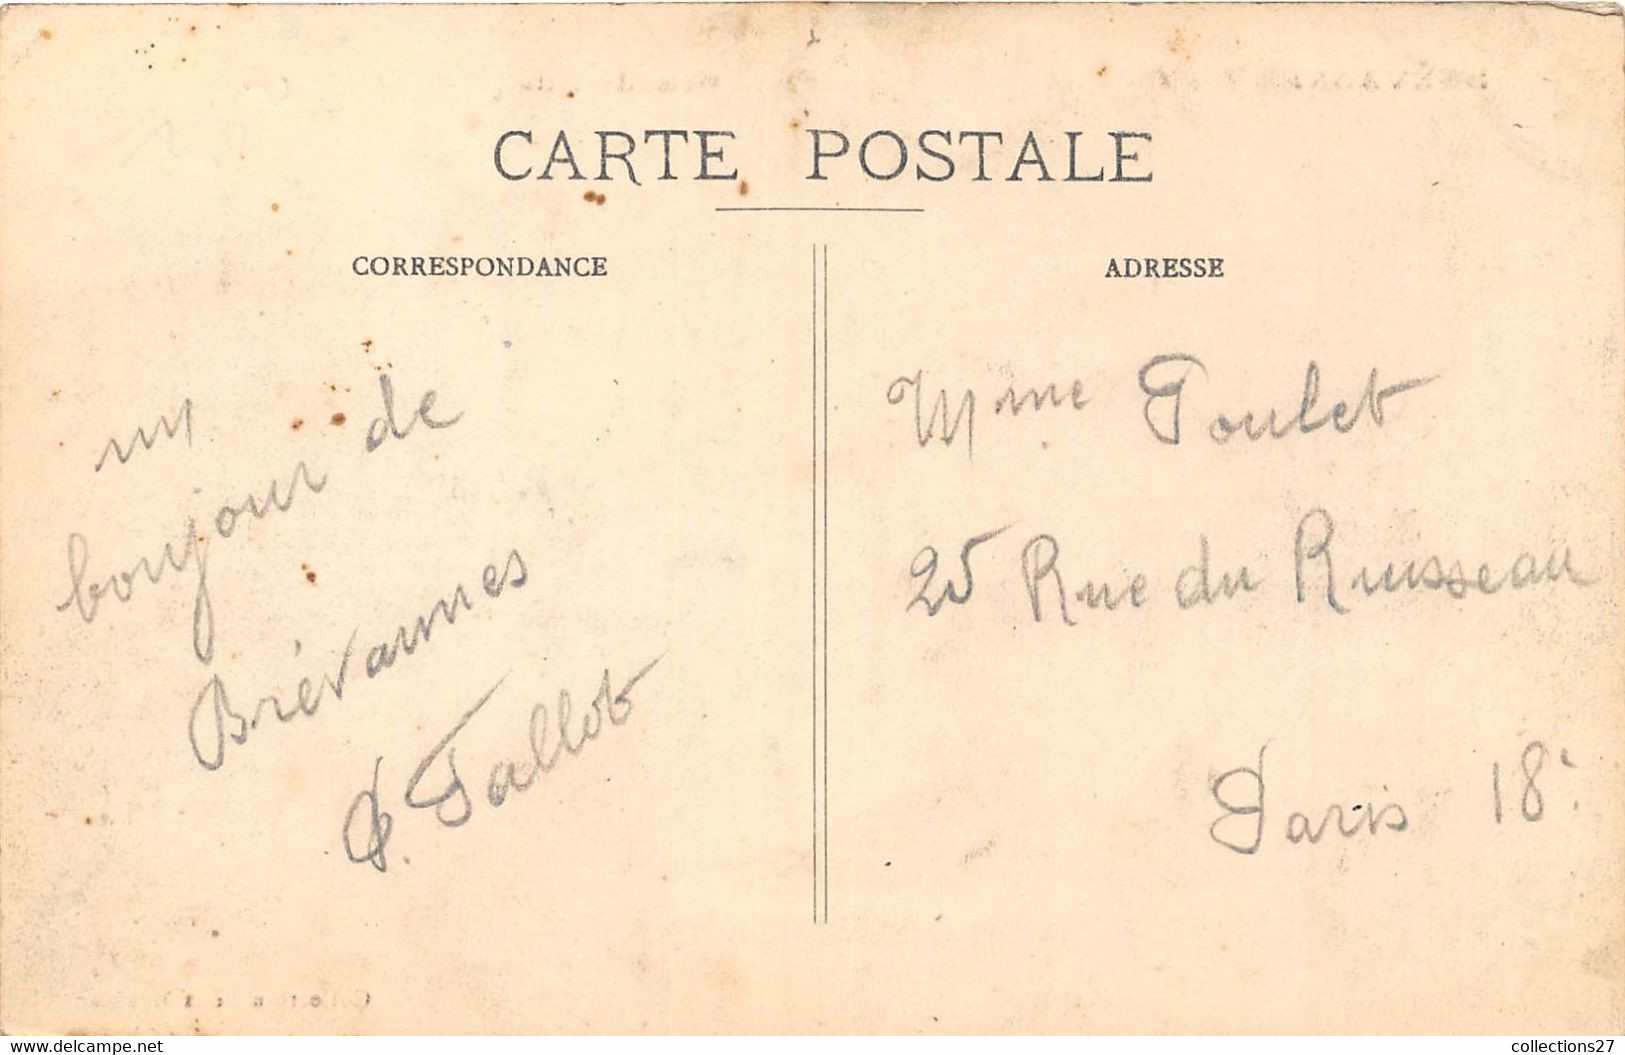 CARTE POSTALE
CORRESPONDANCE
un
bonjour de
Brévannes
Tallot
ADRESSE
Mme Poulet
25 Rue du Ruisseau
Paris 18e
www.delcampe.net
collections27